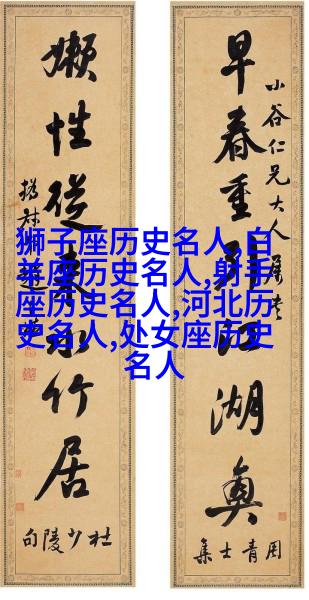 早春重江湖興
小谷仁兄大人屬書
周青士集
懶性從來水竹居
杜少陵句
狮子座历史名人,白
羊座历史名人,射手
座历史名人,河北历
史名人,处女座历史
名人